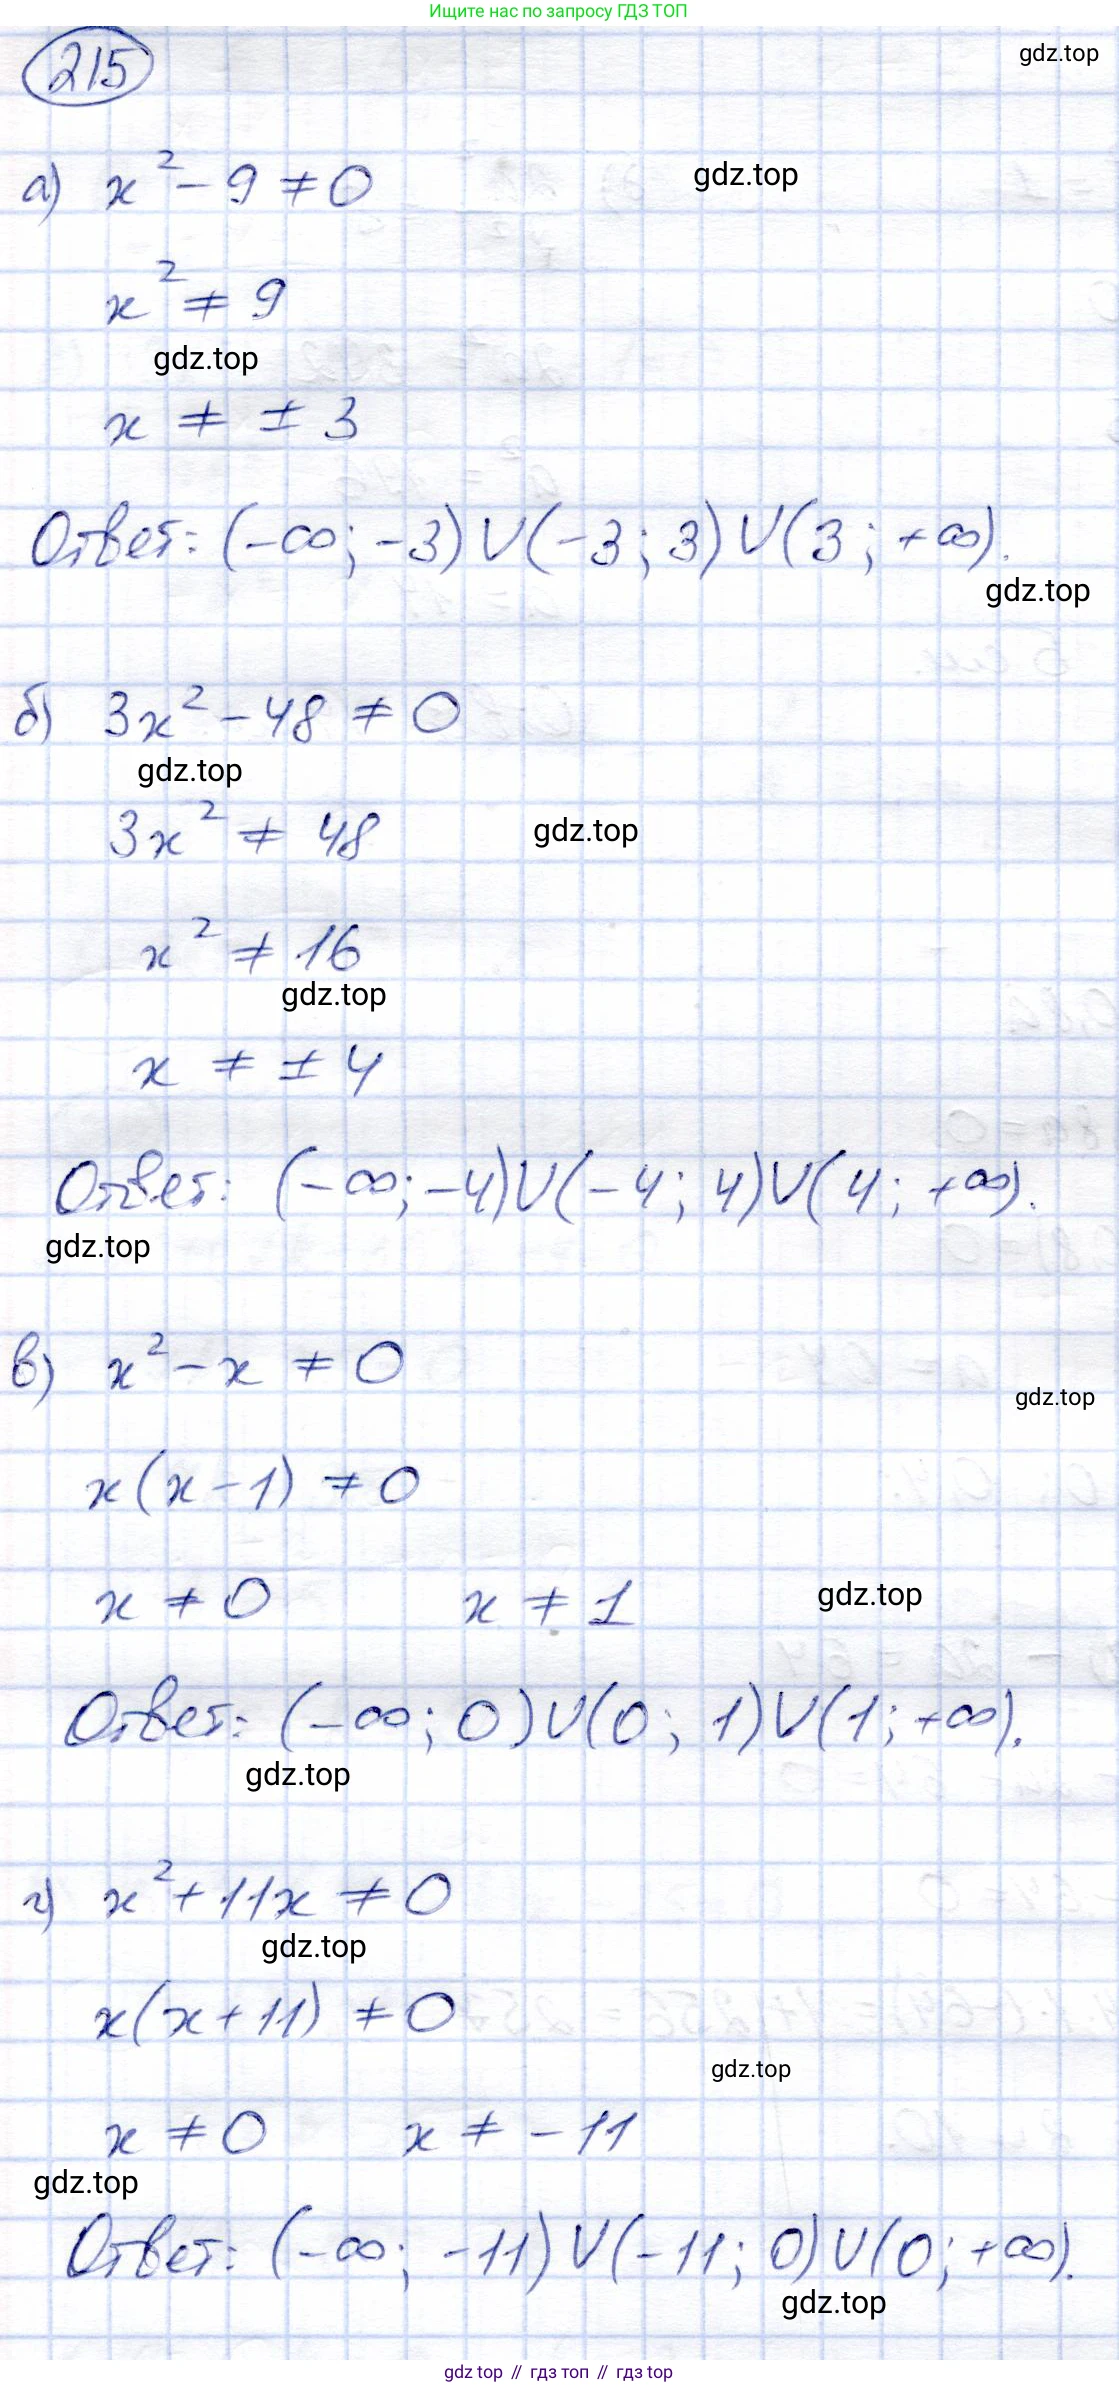 Ищите нас по запросу ГДЗ ТОП
215
gdz.top
а) x² - 9 ≠ 0
gdz.top
x² ≠ 9
gdz.top
x ≠ ± 3
Ответ: (-∞; -3) ∪ (-3; 3) ∪ (3; +∞).
gdz.top
б) 3x² - 48 ≠ 0
gdz.top
3x² ≠ 48
gdz.top
x² ≠ 16
gdz.top
x ≠ ± 4
Ответ: (-∞; -4) ∪ (-4; 4) ∪ (4; +∞).
gdz.top
в) x² - x ≠ 0
gdz.top
x(x - 1) ≠ 0
x ≠ 0 x ≠ 1
gdz.top
Ответ: (-∞; 0) ∪ (0; 1) ∪ (1; +∞).
gdz.top
г) x² + 11x ≠ 0
gdz.top
x(x + 11) ≠ 0
gdz.top
x ≠ 0 x ≠ - 11
gdz.top
Ответ: (-∞; -11) ∪ (-11; 0) ∪ (0; +∞).
gdz.top
gdz top // гдз топ // гдз top